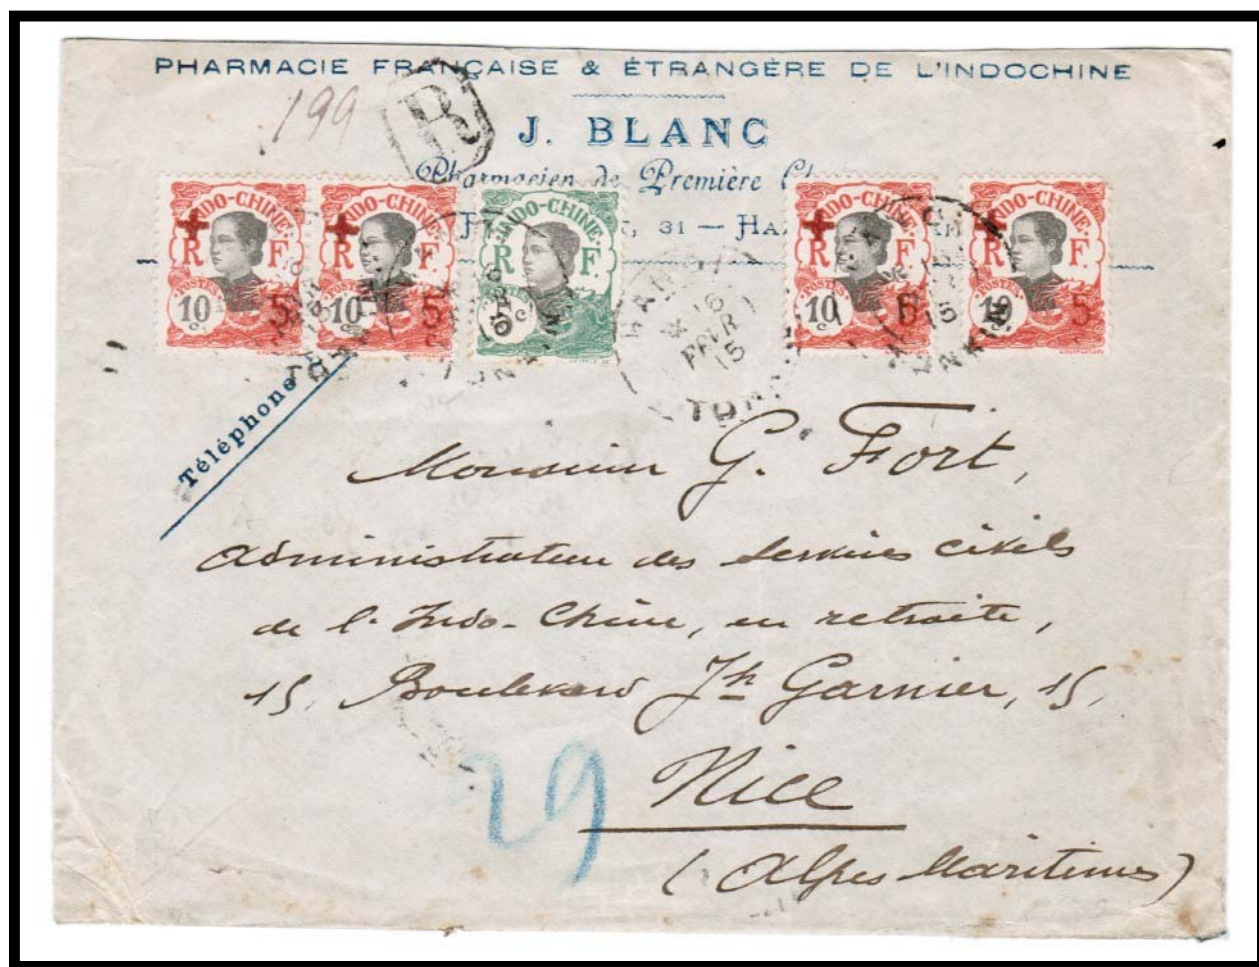 PHARMACIE FRANÇAISE & ÉTRANGÈRE DE L'INDOCHINE
199
R
J. BLANC
Pharmacien de Première
31 — HA
INDO-CHINE
R F
POSTES
10 c. 5
INDO-CHINE
R F
POSTES
10 c. 5
INDO-CHINE
R F
POSTES
5 c.
INDO-CHINE
R F
POSTES
10 c. 5
INDO-CHINE
R F
POSTES
10 c. 5
HANOI
16
FEVR
15
Téléphone
Monsieur G. Fort,
Administrateur des Services civils
de l'Indo-Chine, en retraite,
15, Boulevard Jh Garnier, 15,
Nice
(Alpes Maritimes)
29